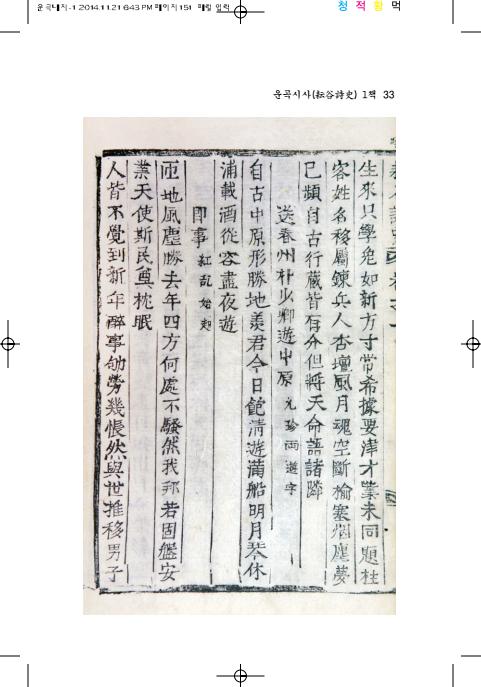 운곡내지-1 2014.11.21 6:43 PM 페이지151 매킨
청 적 황 먹
운곡시사(耘谷詩史) 1책 33
生來只學兔如新方寸常希據要津才業未同題柱
客姓名移屬鍊兵人杏壇風月魂空斷楡塞烟塵夢
已頻自古行藏皆有分但將天命語諸隣
送春州朴少卿遊中原 允珍
自古中原形勝地羨君今日飽淸遊滿船明月琴休
浦載酒從容盡夜遊
卽事 紅亂始起
匝地風塵勝去年四方何處不騷然我邦若固盤安
業天使斯民奠枕眠
人皆不覺到新年醉事劬勞幾悵然與世推移男子